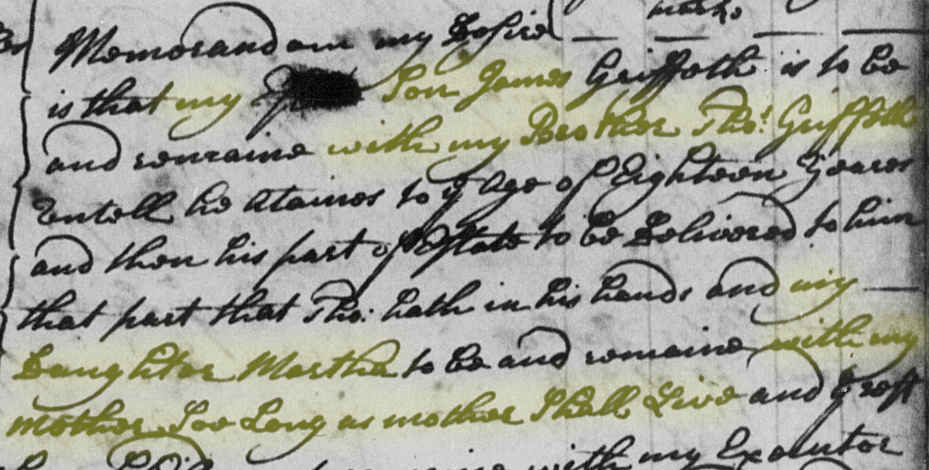 marke
Memorandom my Desire
is that my Son James Griffeth is to be
and remaine with my Brother Tho: Griffeth
untell he ataines to ye Age of Eighteen Yeares
and then his part of Estate to be Delivered to him
that part that Tho: hath in his hands and my
Daughter Martha to be and remaine with my
mother Soe Long as mother Shall Live and ye rest
with my Executor